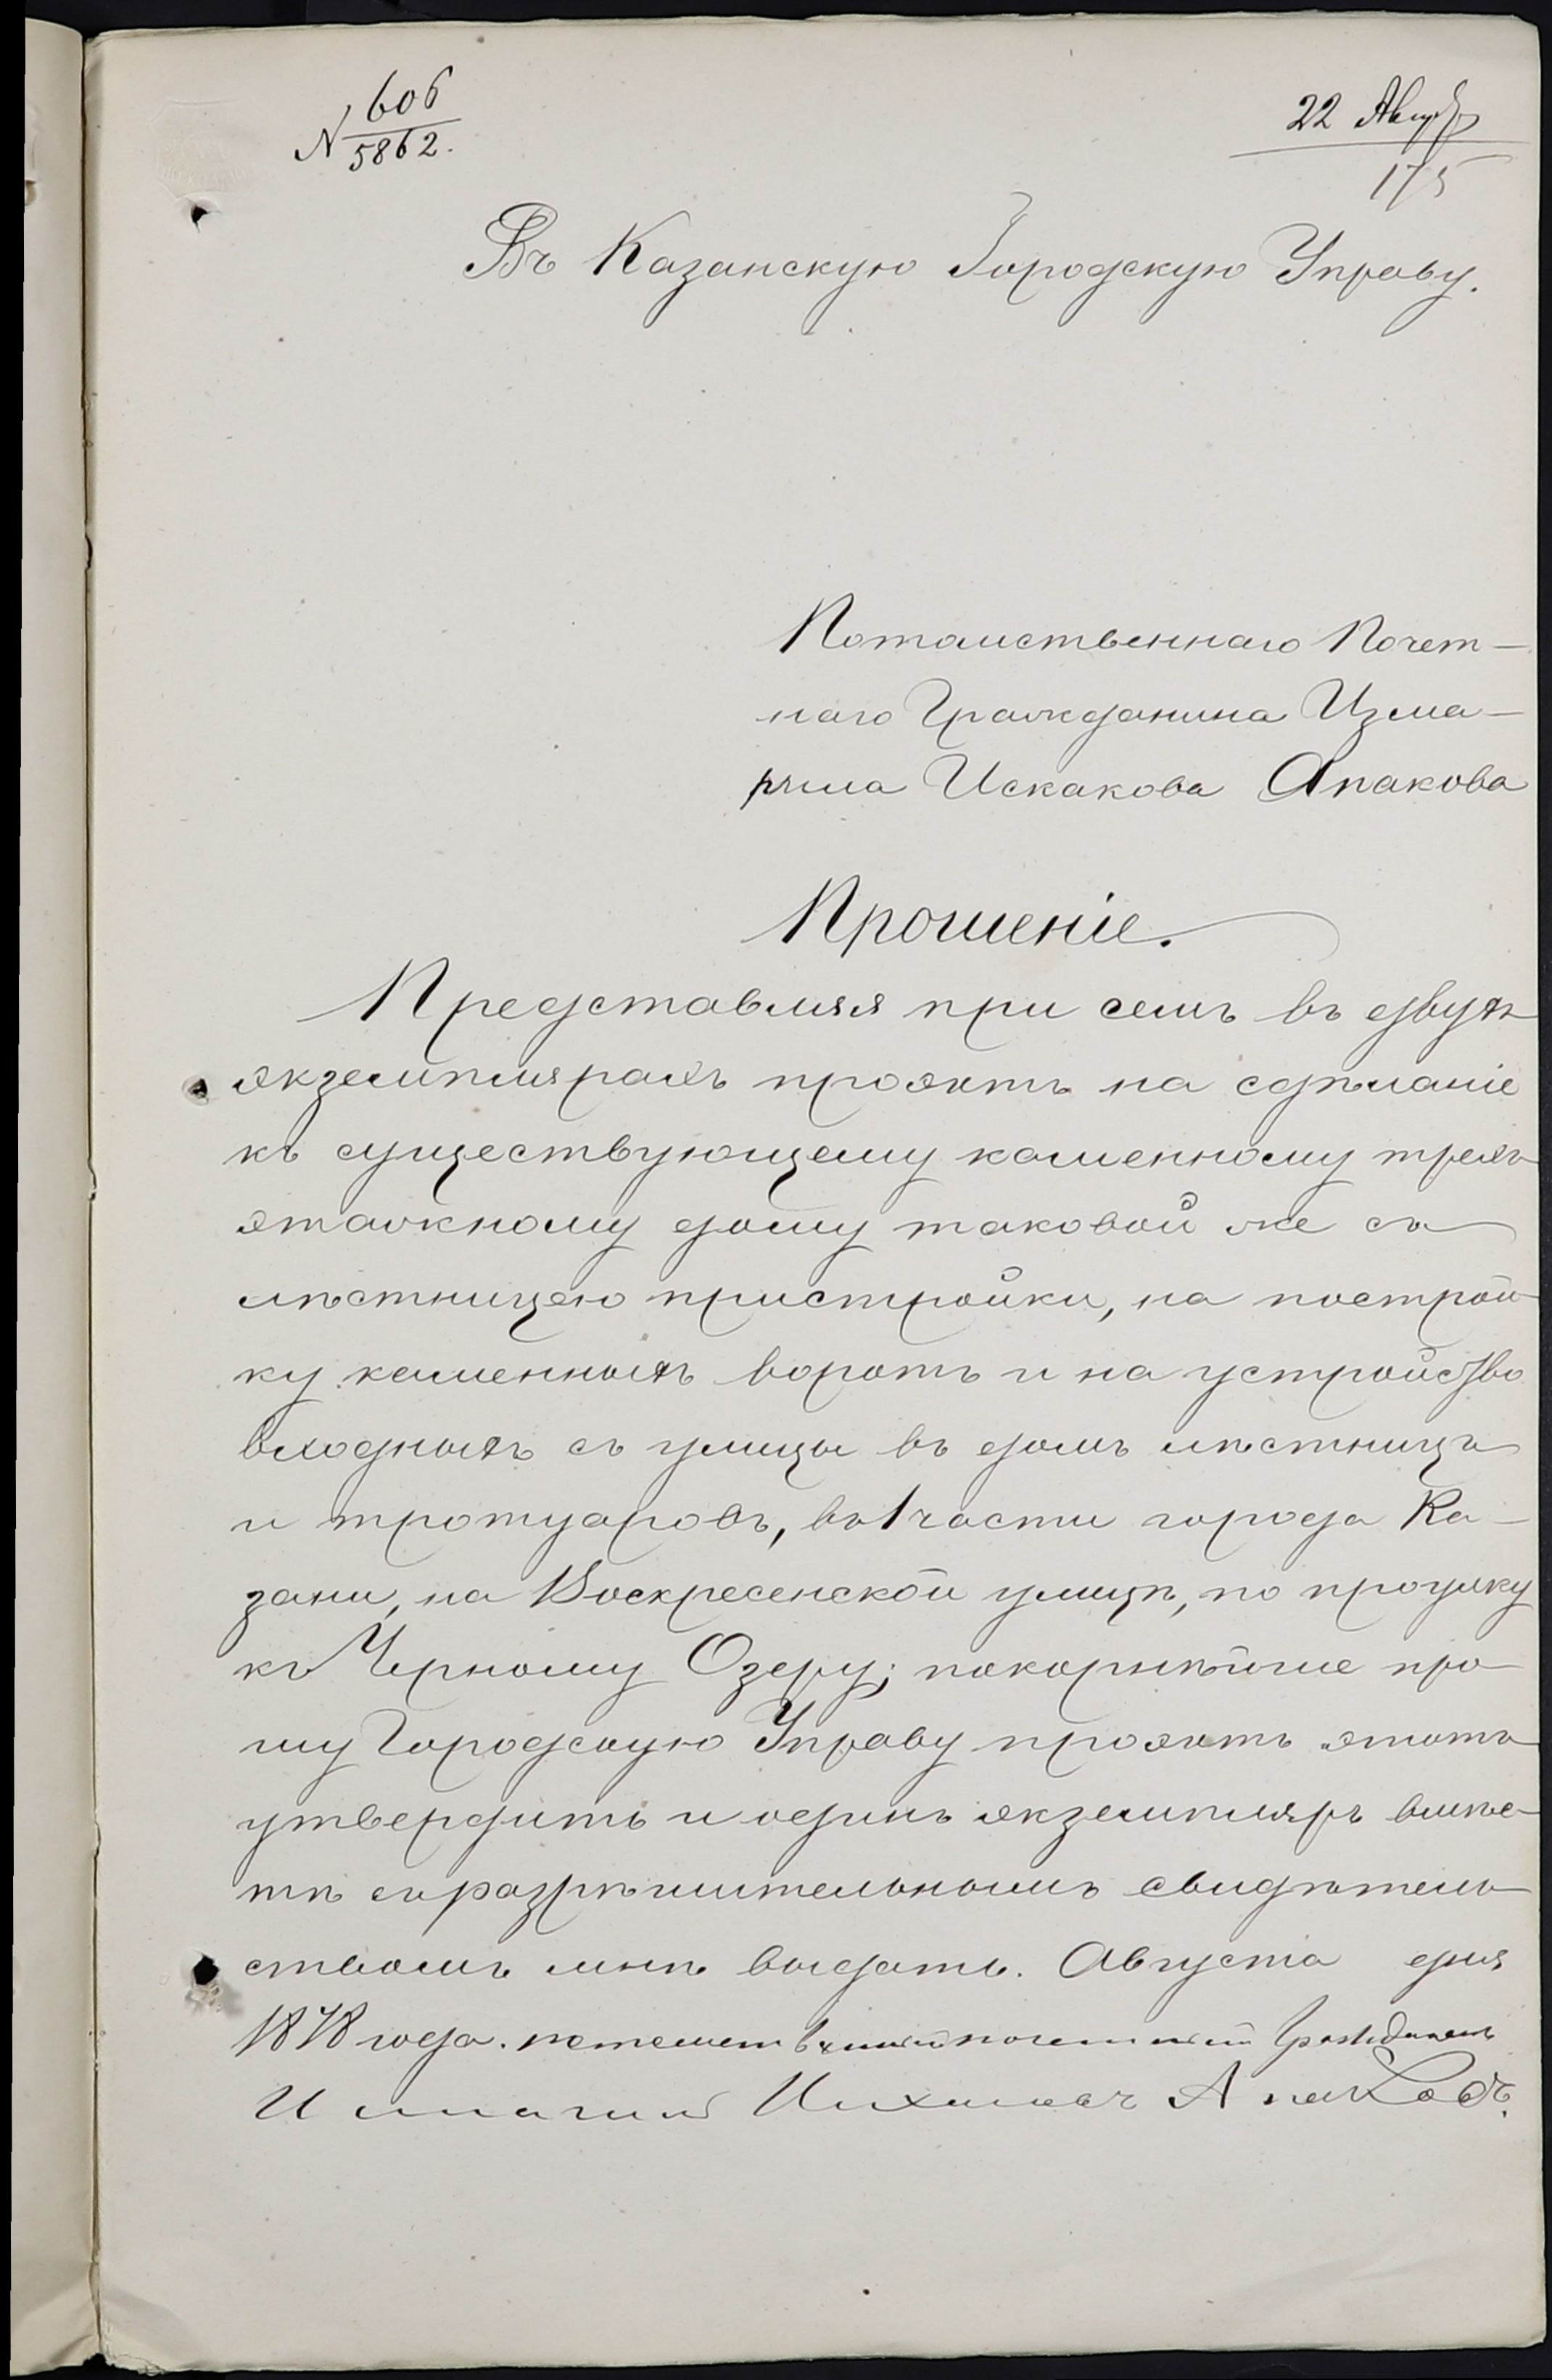 606
№ 5862.
22 Августа
175
Въ Казанскую Городскую Управу.
Потомственнаго Почет-
наго Гражданина Изма-
ѣила Искакова Апакова
Прошеніе.
Представляя при семъ въ двухъ
экземплярахъ проэктъ на сдѣланіе
къ существующему каменному трехъ
этажному дому таковой же съ
лѣстницею пристройки, на построй-
ку каменныхъ воротъ и на устройство
входныхъ съ улицы въ домъ лѣстницъ
и тротуаровъ, въ 1 части города Ка-
зани, на Воскресенской улицѣ, по проулку
къ Черному Озеру; покорнѣйше про-
шу Городскую Управу проэктъ этотъ
утвердить и одинъ экземпляръ вмѣс-
тѣ съ разрѣшительнымъ свидѣтель-
ствомъ мнѣ выдать. Августа дня
1878 года. потомственный почетный Гражданинъ
Апаковъ.